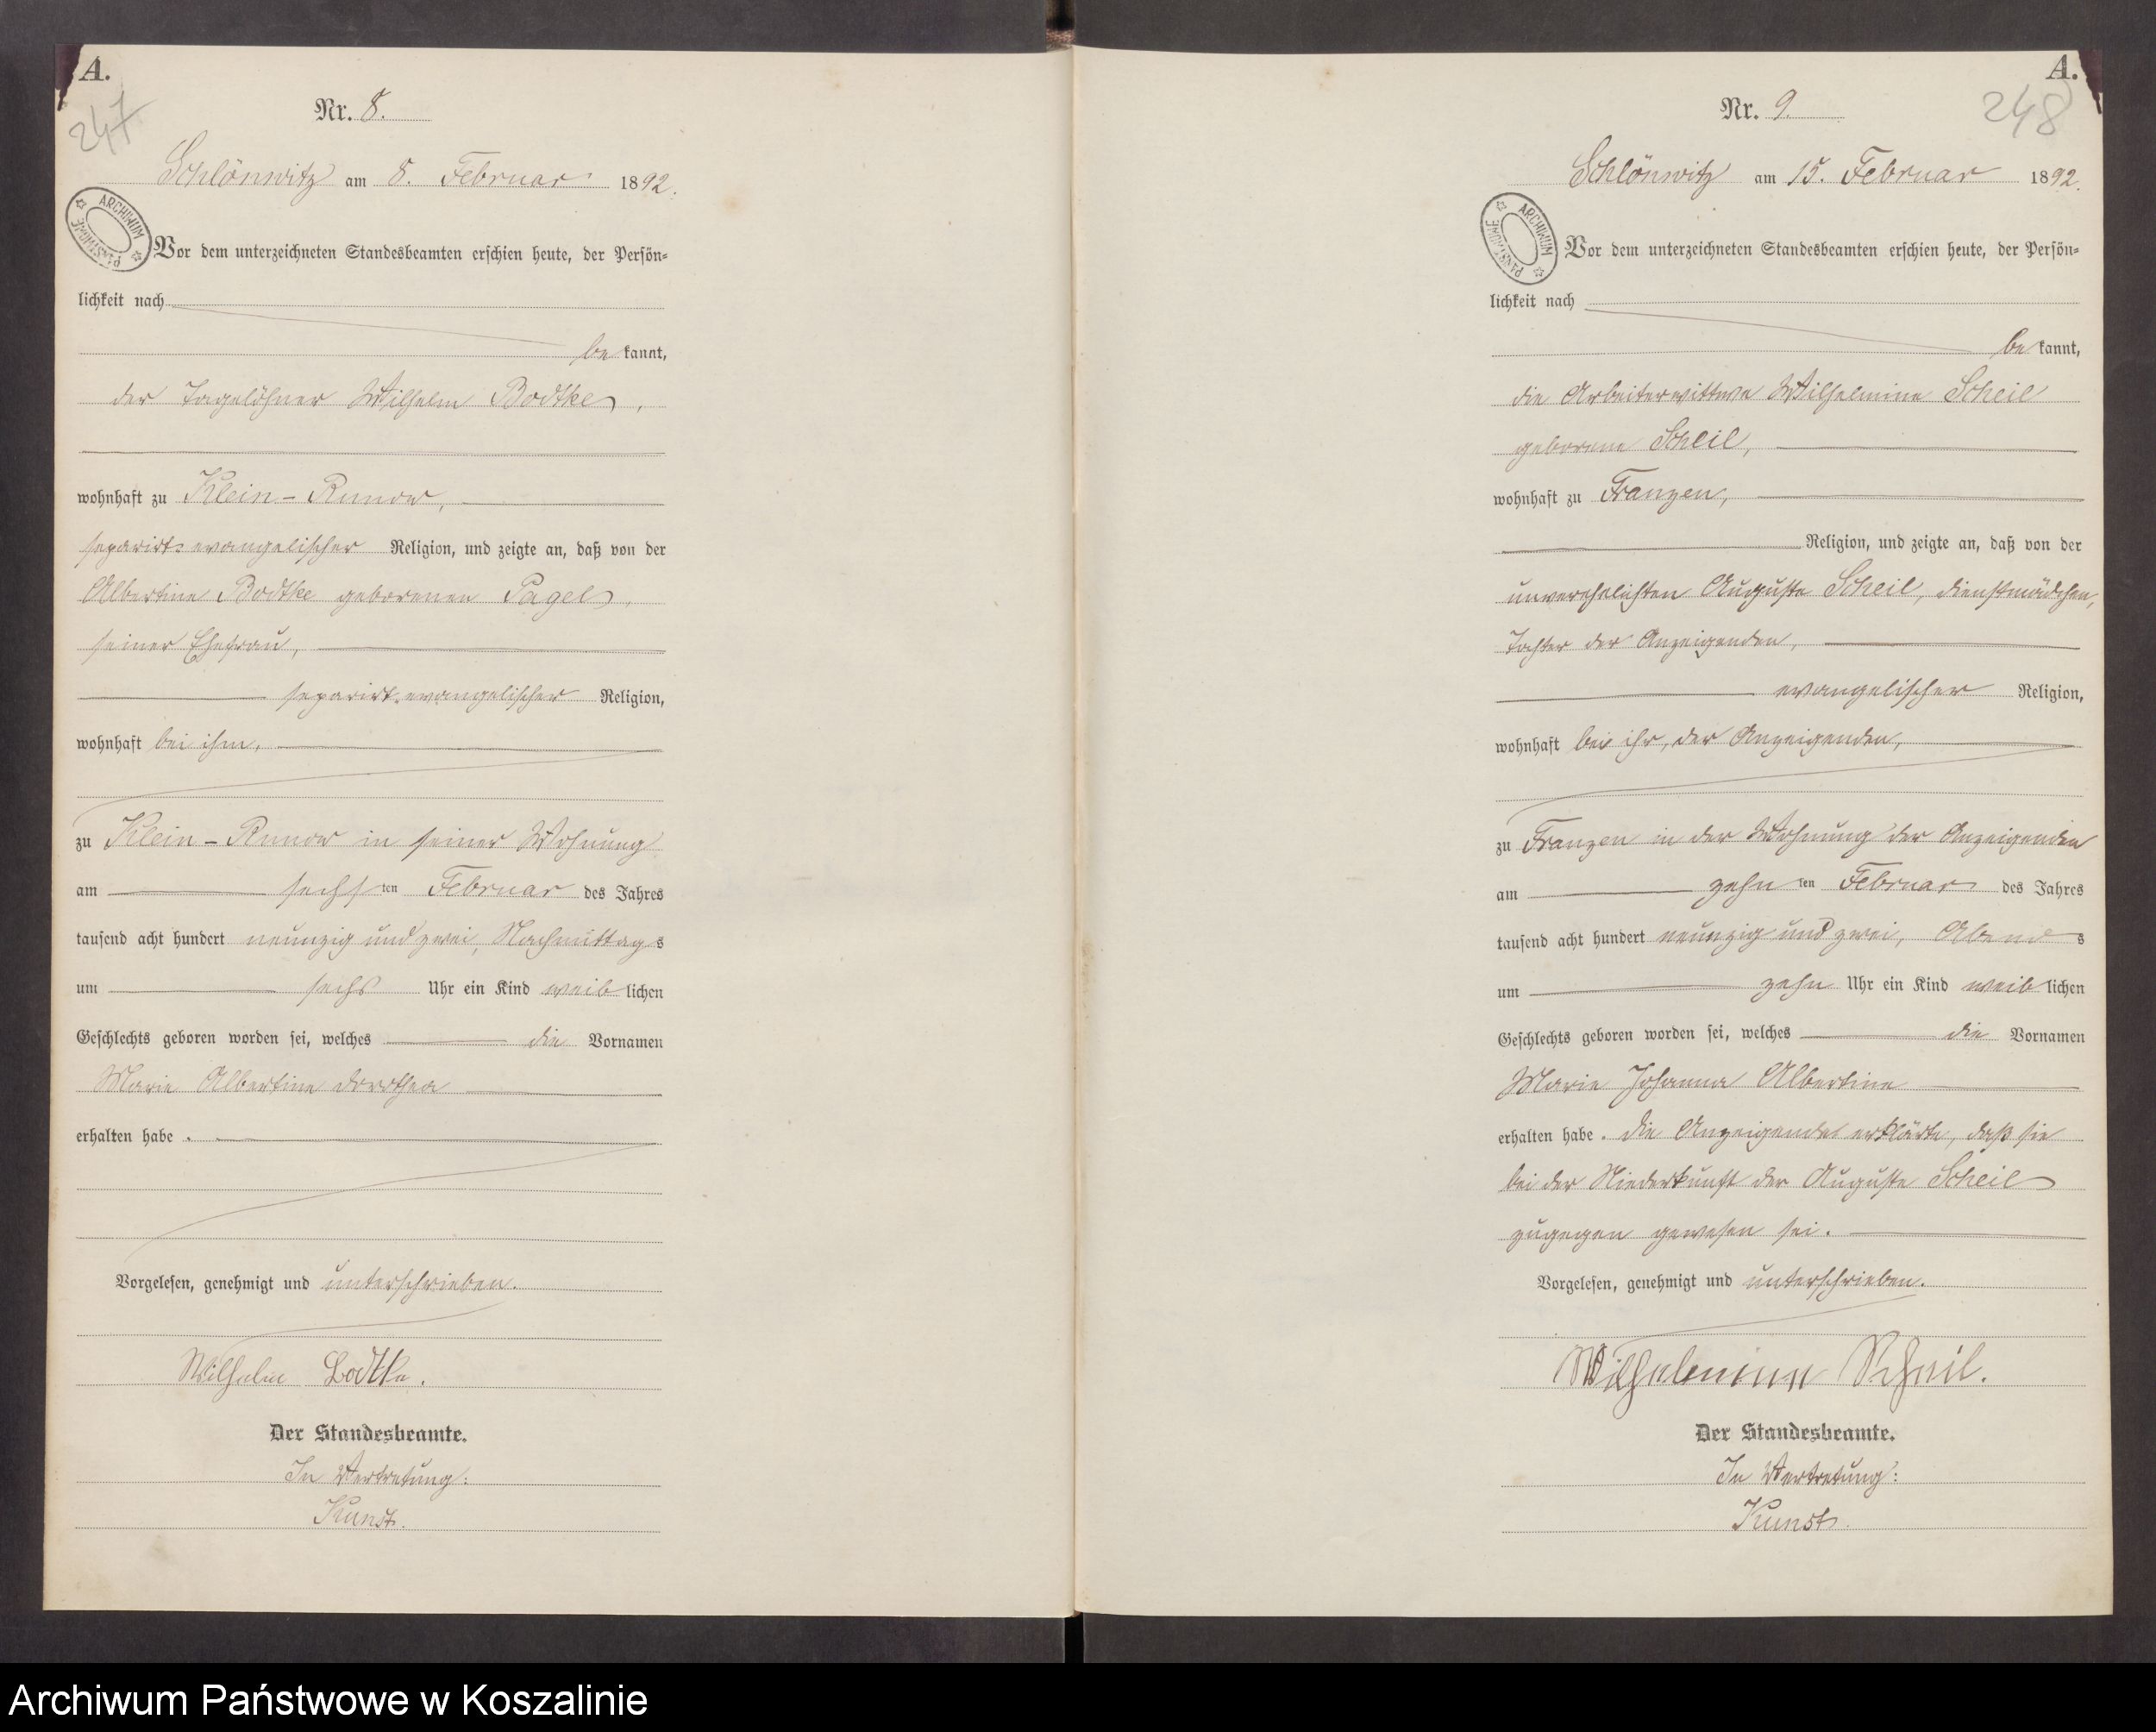 A.
247
Nr. 8.
Schlönwitz am 8. Februar 1892.
ARCHIWUM PAŃSTWOWE
Vor dem unterzeichneten Standesbeamten erschien heute, der Persön-
lichkeit nach
bekannt,
der Tagelöhner Wilhelm Bodtke,
wohnhaft zu Klein-Runow,
separirt-evangelischer Religion, und zeigte an, daß von der
Albertine Bodtke geborenen Pagel,
seiner Ehefrau,
separirt-evangelischer Religion,
wohnhaft bei ihm,
zu Klein-Runow in seiner Wohnung
am sechsten Februar des Jahres
tausend acht hundert neunzig und zwei, Nachmittags
um sechs Uhr ein Kind weiblichen
Geschlechts geboren worden sei, welches die Vornamen
Marie Albertine Dorothea
erhalten habe.
Vorgelesen, genehmigt und unterschrieben.
Wilhelm Bodtke.
Der Standesbeamte.
In Vertretung:
Kunst.
A.
248
Nr. 9.
Schlönwitz am 15. Februar 1892.
ARCHIWUM PAŃSTWOWE
Vor dem unterzeichneten Standesbeamten erschien heute, der Persön-
lichkeit nach
bekannt,
die Arbeiterwittwe Wilhelmine Scheil
geborene Scheil,
wohnhaft zu Franzen,
Religion, und zeigte an, daß von der
unverehelichten Auguste Scheil, Dienstmädchen,
Tochter der Anzeigenden,
evangelischer Religion,
wohnhaft bei ihr, der Anzeigenden,
zu Franzen in der Wohnung der Anzeigenden
am zehnten Februar des Jahres
tausend acht hundert neunzig und zwei, Abends
um zehn Uhr ein Kind weiblichen
Geschlechts geboren worden sei, welches die Vornamen
Marie Johanna Albertine
erhalten habe. Die Anzeigende erklärte, daß sie
bei der Niederkunft der Auguste Scheil
zugegen gewesen sei.
Vorgelesen, genehmigt und unterschrieben.
Wilhelmine Scheil.
Der Standesbeamte.
In Vertretung:
Kunst.
Archiwum Państwowe w Koszalinie